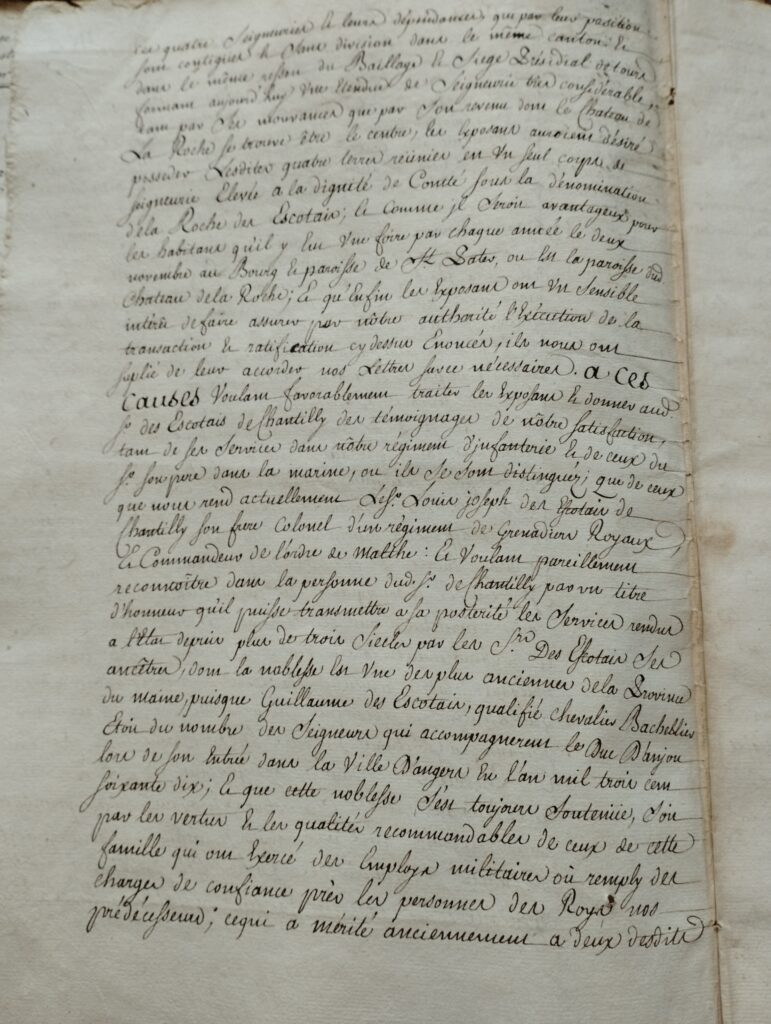 les quatre Seigneuries & leurs dépendances, que par leur position
sont contigues & sans division dans le même canton &
dans le même ressort du Baillage & Siege Présidial de tours
formant aujourd'huy Une étendue de Seigneurie très considérable,
tant par Ses mouvances que par Son revenu dont le Chateau de
La Roche se trouve être le centre, les Exposans auroient désiré
posseder Lesdites quatre terres réunies en Un seul corps de
seigneurie Elevée a la dignité de Comté sous la dénomination
dela Roche des Escotais; & comme jl Seroit avantageux pour
les habitans qu'il y Eut Une foire par chaque année le deux
novembre au Bourg & paroisse de St. Pater, ou Est la paroisse dud
Chateau dela Roche; & qu'Enfin les Exposans ont Un Sensible
intérêt de faire assurer par nôtre authorité l'Exécution de la
transaction & ratification cy dessus Enoncés, ils nous ont
suplié de leur accorder nos Lettres sur ce nécessaires. a ces
causes Voulant favorablement traiter les Exposans & donner aud
Sr. des Escotais de Chantilly des témoignages de nôtre satisfaction,
tant de ses Services dans nôtre régiment d'jnfanterie & de ceux du
Sr. son pere dans la marine, ou ils se sont distingués; que de ceux
que nous rend actuellement Led. Sr. Louis joseph des Escotais de
Chantilly son frere Colonel d'un régiment de Grenadiers Royaux,
& Commandeur de l'ordre de Malthe: & Voulant pareillement
reconnoître dans la personne dud. Sr. de Chantilly par un titre
d'honneur qu'il puisse transmettre a sa postérité les Services rendus
a l'Etat depuis plus de trois Siecles par les Srs. Des Escotais Ses
ancêtres, dont la noblesse Est Une des plus anciennes dela Province
du maine, puisque Guillaume des Escotais, qualifié chevalier Bachellier
Etoit du nombre des Seigneurs qui accompagnerent le Duc D'anjou
lors de son Entrée dans la Ville D'angers En l'an mil trois cent
soixante dix; & que cette noblesse s'est toujours Soutenüe, Soit
par les vertus & les qualités recommandables de ceux de cette
famille qui ont Exercé des Employs militaires où remply des
charges de confiance près les personnes des Roys nos
prédécesseurs; cequi a mérité anciennement a deux desdits